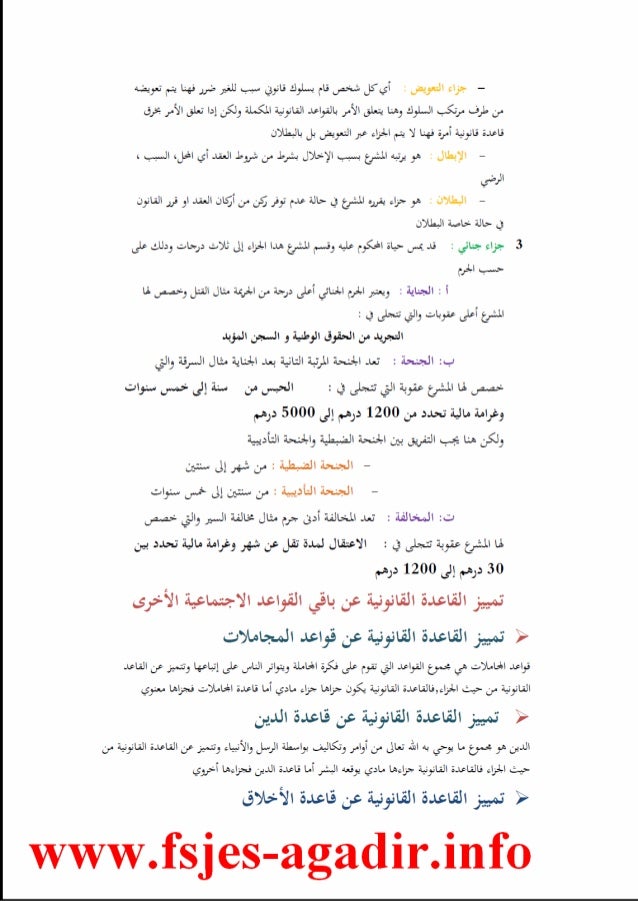 – جزاء التعويض : أي كل شخص قام بسلوك قانوني سبب للغير ضرر فهنا يتم تعويضه
من طرف مرتكب السلوك وهنا يتعلق الأمر بالقواعد القانونية المكملة ولكن إدا تعلق الأمر بخرق
قاعدة قانونية أمرة فهنا لا يتم الجزاء عبر التعويض بل بالبطلان
– الإبطال : هو يرتبه المشرع بسبب الإخلال بشرط من شروط العقد أي المحل، السبب ،
الرضي
– البطلان : هو جزاء يقرره المشرع في حالة عدم توفر ركن من أركان العقد او قرر القانون
في حالة خاصة البطلان
3 جزاء جنائي : قد يمس حياة المحكوم عليه وقسم المشرع هدا الجزاء إلى ثلاث درجات ودلك على
حسب الجرم
أ : الجناية : ويعتبر الجرم الجنائي أعلى درجة من الجريمة مثال القتل وخصص لها
المشرع أعلى عقوبات والتي تتجلى في :
التجريد من الحقوق الوطنية و السجن المؤبد
ب: الجنحة : تعد الجنحة المرتبة التانية بعد الجناية مثال السرقة والتي
خصص لها المشرع عقوبة التي تتجلى في : الحبس من سنة إلى خمس سنوات
وغرامة مالية تحدد من 1200 درهم إلى 5000 درهم
ولكن هنا يجب التفريق بين الجنحة الضبطية والجنحة التأديبية
– الجنحة الضبطية : من شهر إلى سنتين
– الجنحة التأديبية : من سنتين إلى خمس سنوات
ت: المخالفة : تعد المخالفة أدنى جرم مثال مخالفة السير والتي خصص
لها المشرع عقوبة تتجلى في : الاعتقال لمدة تقل عن شهر وغرامة مالية تحدد بين
30 درهم إلى 1200 درهم
تمييز القاعدة القانونية عن باقي القواعد الاجتماعية الأخرى
➢ تمييز القاعدة القانونية عن قواعد المجاملات
قواعد المجاملات هي مجموع القواعد التي تقوم على فكرة المجاملة ويتواتر الناس على إتباعها وتتميز عن القاعد
القانونية من حيث الجزاء,فالقاعدة القانونية يكون جزاها جزاء مادي أما قاعدة المجاملات فجزاها معنوي
➢ تمييز القاعدة القانونية عن قاعدة الدين
الدين هو مجموع ما يوحي به الله تعالى من أوامر وتكاليف بواسطة الرسل والأنبياء وتتميز عن القاعدة القانونية من
حيث الجزاء فالقاعدة القانونية جزاءها مادي يوقعه البشر أما قاعدة الدين فجزاءها أخروي
➢ تمييز القاعدة القانونية عن قاعدة الأخلاق
www.fsjes-agadir.info